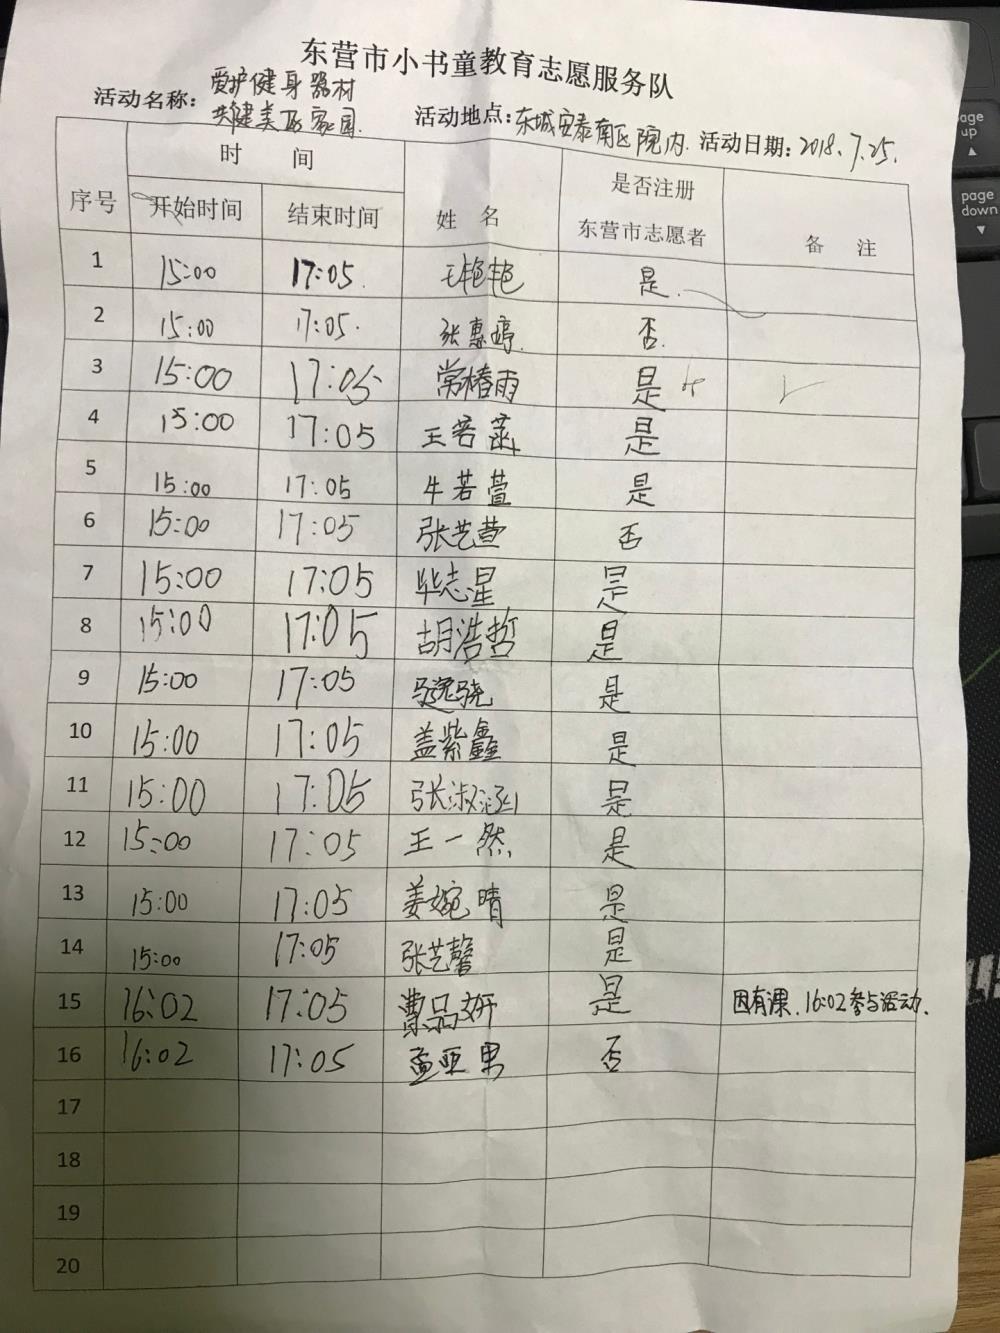 东营市小书童教育志愿服务队
活动名称：爱护健身器材
共建美丽家园 活动地点：东城安泰南区院内 活动日期：2018.7.25.
序号 时 间 姓 名 是否注册 备 注
开始时间 结束时间 东营市志愿者
1 15:00 17:05. 王艳艳 是.
2 15:00 17:05. 张惠婷. 否.
3 15:00 17:05 常椿雨 是
4 15:00 17:05 王若菡 是
5 15:00 17:05 牛若萱 是
6 15:00 17:05 张艺萱 否
7 15:00 17:05 毕志星 是
8 15:00 17:05 胡浩哲 是
9 15:00 17:05 是
10 15:00 17:05 盖紫鑫 是
11 15:00 17:05 张淑涵 是
12 15:00 17:05 王一然 是
13 15:00 17:05 姜婉晴 是
14 15:00 17:05 张艺馨 是
15 16:02 17:05 曹品妍 是 因有课、16:02参与活动.
16 16:02 17:05 孟亚男 否
17
18
19
20
page
up
page
down